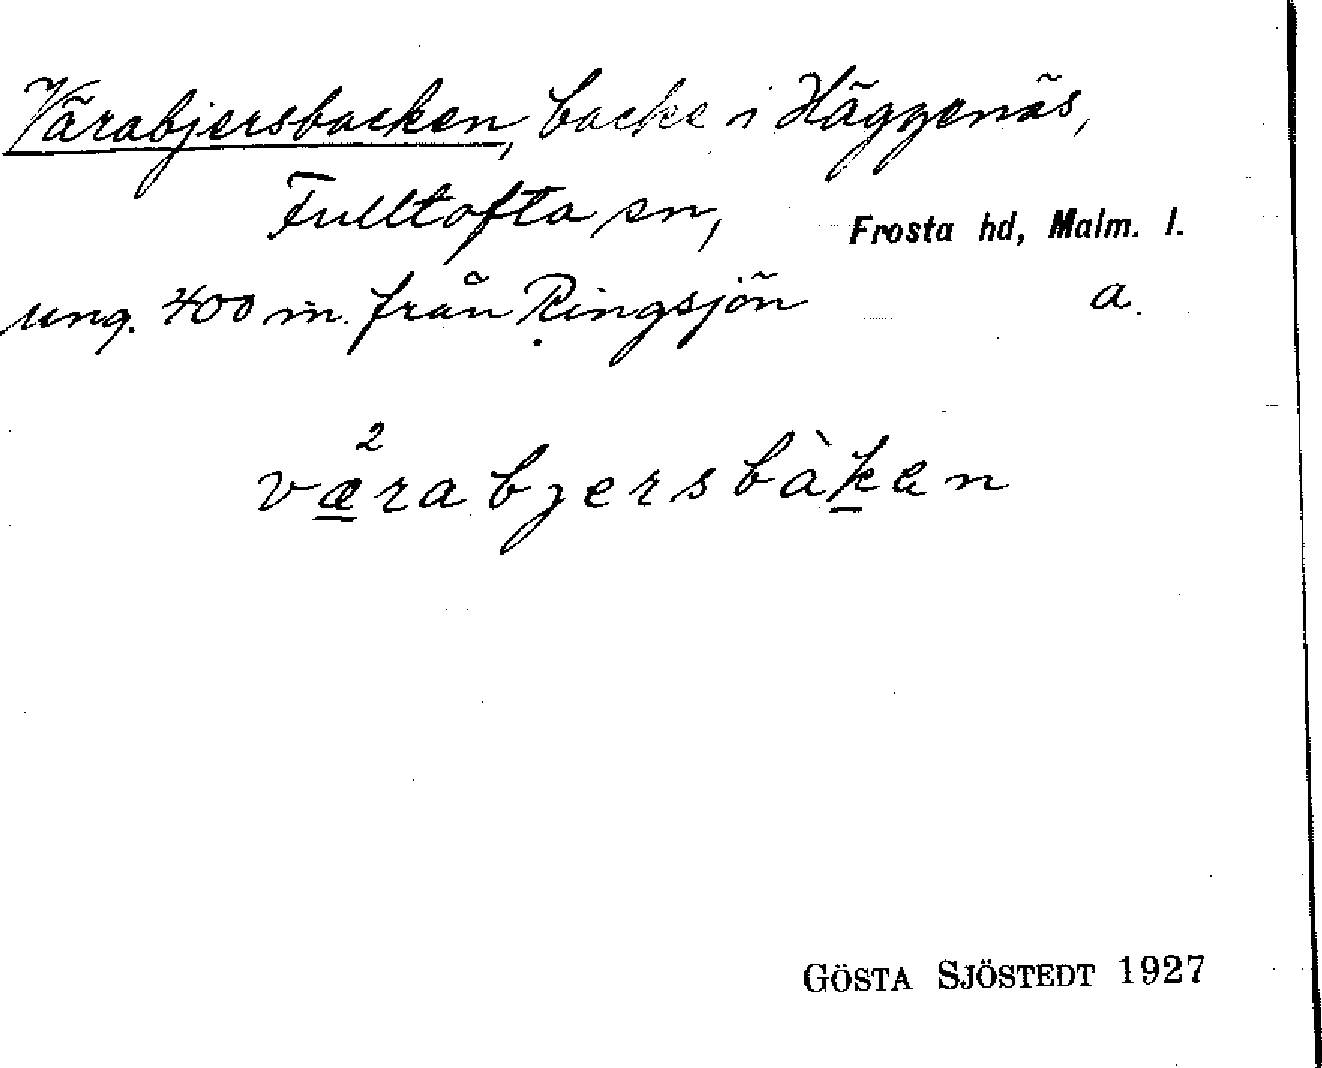 Värabjersbacken, backe i Häggenäs,
Fulltofta sn, Frosta hd, Malm. l.
ung. 400 m. från Ringsjön a.
væ²rabjersbàken
GÖSTA SJÖSTEDT 1927